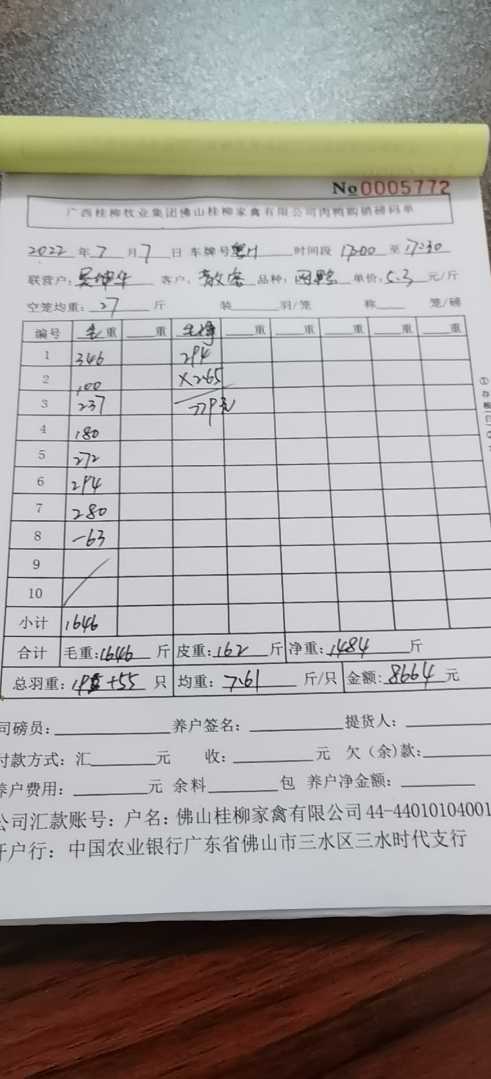 No 0005772
广西桂柳牧业集团佛山桂柳家禽有限公司肉鸭购销磅码单
2022 年 7 月 7 日 车牌号 时间段 17:00 至 17:30
联营户: 客户: 散客 品种: 肉鸭 单价: 5.3 元/斤
空笼均重: 27 斤 装 羽/笼 称 笼/磅
编号 毛 重 重 毛鸡 重 重 重 重 重
1 346 294
2 100 ×2.65
3 237 779元
4 180
5 272
6 294
7 280
8 -63
9
10
小计 1646
合计 毛重: 1646 斤 皮重: 162 斤 净重: 1484 斤
总羽重: +55 只 均重: 7.61 斤/只 金额: 8664 元
司磅员: 养户签名: 提货人:
付款方式: 汇 元 收: 元 欠(余)款:
养户费用: 元 余料 包 养户净金额:
公司汇款账号: 户名: 佛山桂柳家禽有限公司 44-44010104001
开户行: 中国农业银行广东省佛山市三水区三水时代支行